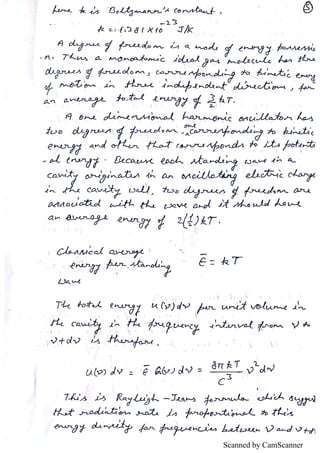 here k is Boltzmann's constant.
5
k = 1.381 X10⁻²³ J/K
A degree of freedom is a mode of energy possessio
-n. Thus a monoatomic ideal gas molecule has three
degrees of freedom, corresponding to kinetic energy
of motion in three independent directions, for
an average total energy of 3/2 kT.
A one dimensional harmonic oscillator has
two degrees of freedom, one corresponding to kinetic
energy and other that corresponds to its potenti
-al energy. Because each standing wave in a
cavity originates in an oscillating electric charge
in the cavity wall, two degrees of freedom are
associated with the wave and it should have
an average energy of 2(1/2)kT.
Classical average
energy per standing
wave
ε̄ = kT
The total energy u(ν)dν per unit volume in
the cavity in the frequency interval from ν to
ν+dν is therefore.
u(ν) dν = ε̄ G(ν) dν = 8πkT/C³ ν² dν
This is Rayleigh-Jeans formula which suggest
that radiation rate is proportional to this
energy density for frequencies between ν and ν+dν
Scanned by CamScanner